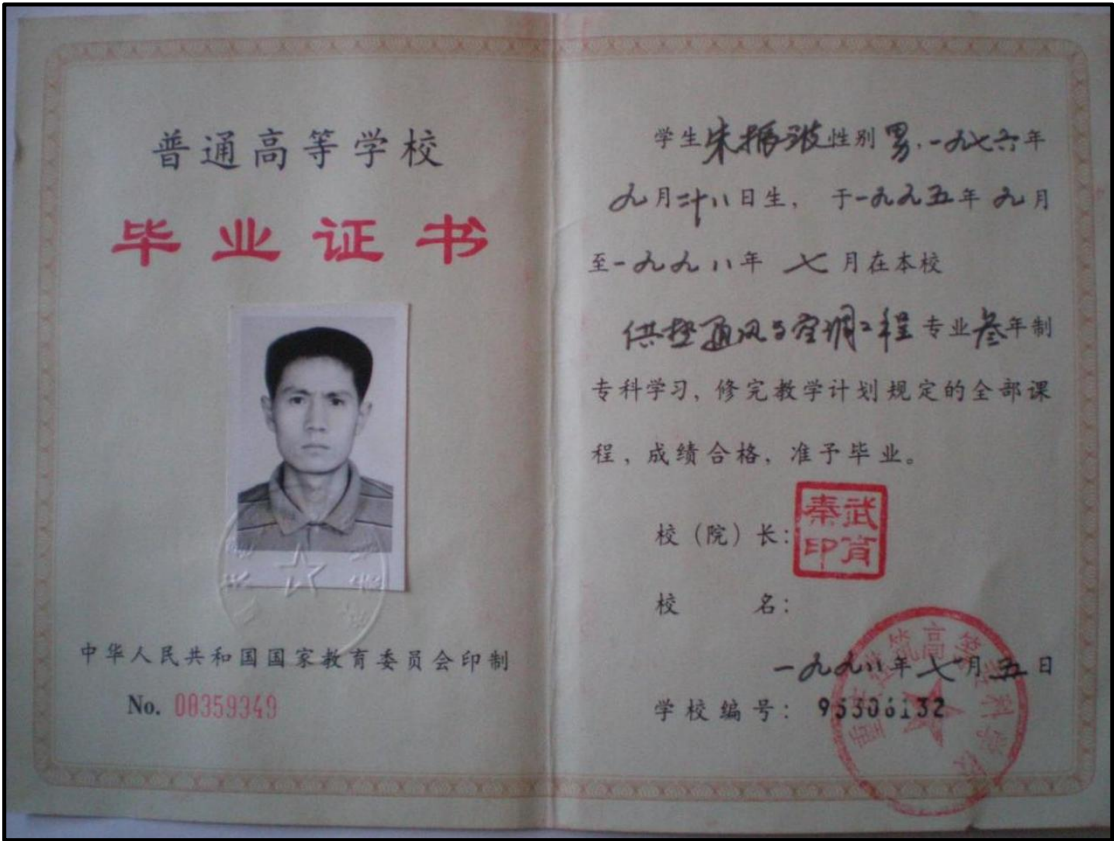 普通高等学校
毕业证书
中华人民共和国国家教育委员会印制
No. 08359349
学生朱振波性别男,一九七六年
九月二十八日生, 于一九九五年九月
至一九九八年 七月在本校
供热通风与空调工程专业叁年制
专科学习, 修完教学计划规定的全部课
程, 成绩合格, 准予毕业。
校(院)长:
秦武
印肖
校 名:
建筑高等专科学校
一九九八年七月五日
学校编号: 95306132